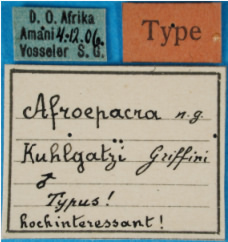 D. O. Afrika
Amani 4.12.06.
Vosseler S. G.
Type
Afroepacra n.g.
Kuhlgatzi Griffini
♂
Typus!
hochinteressant!